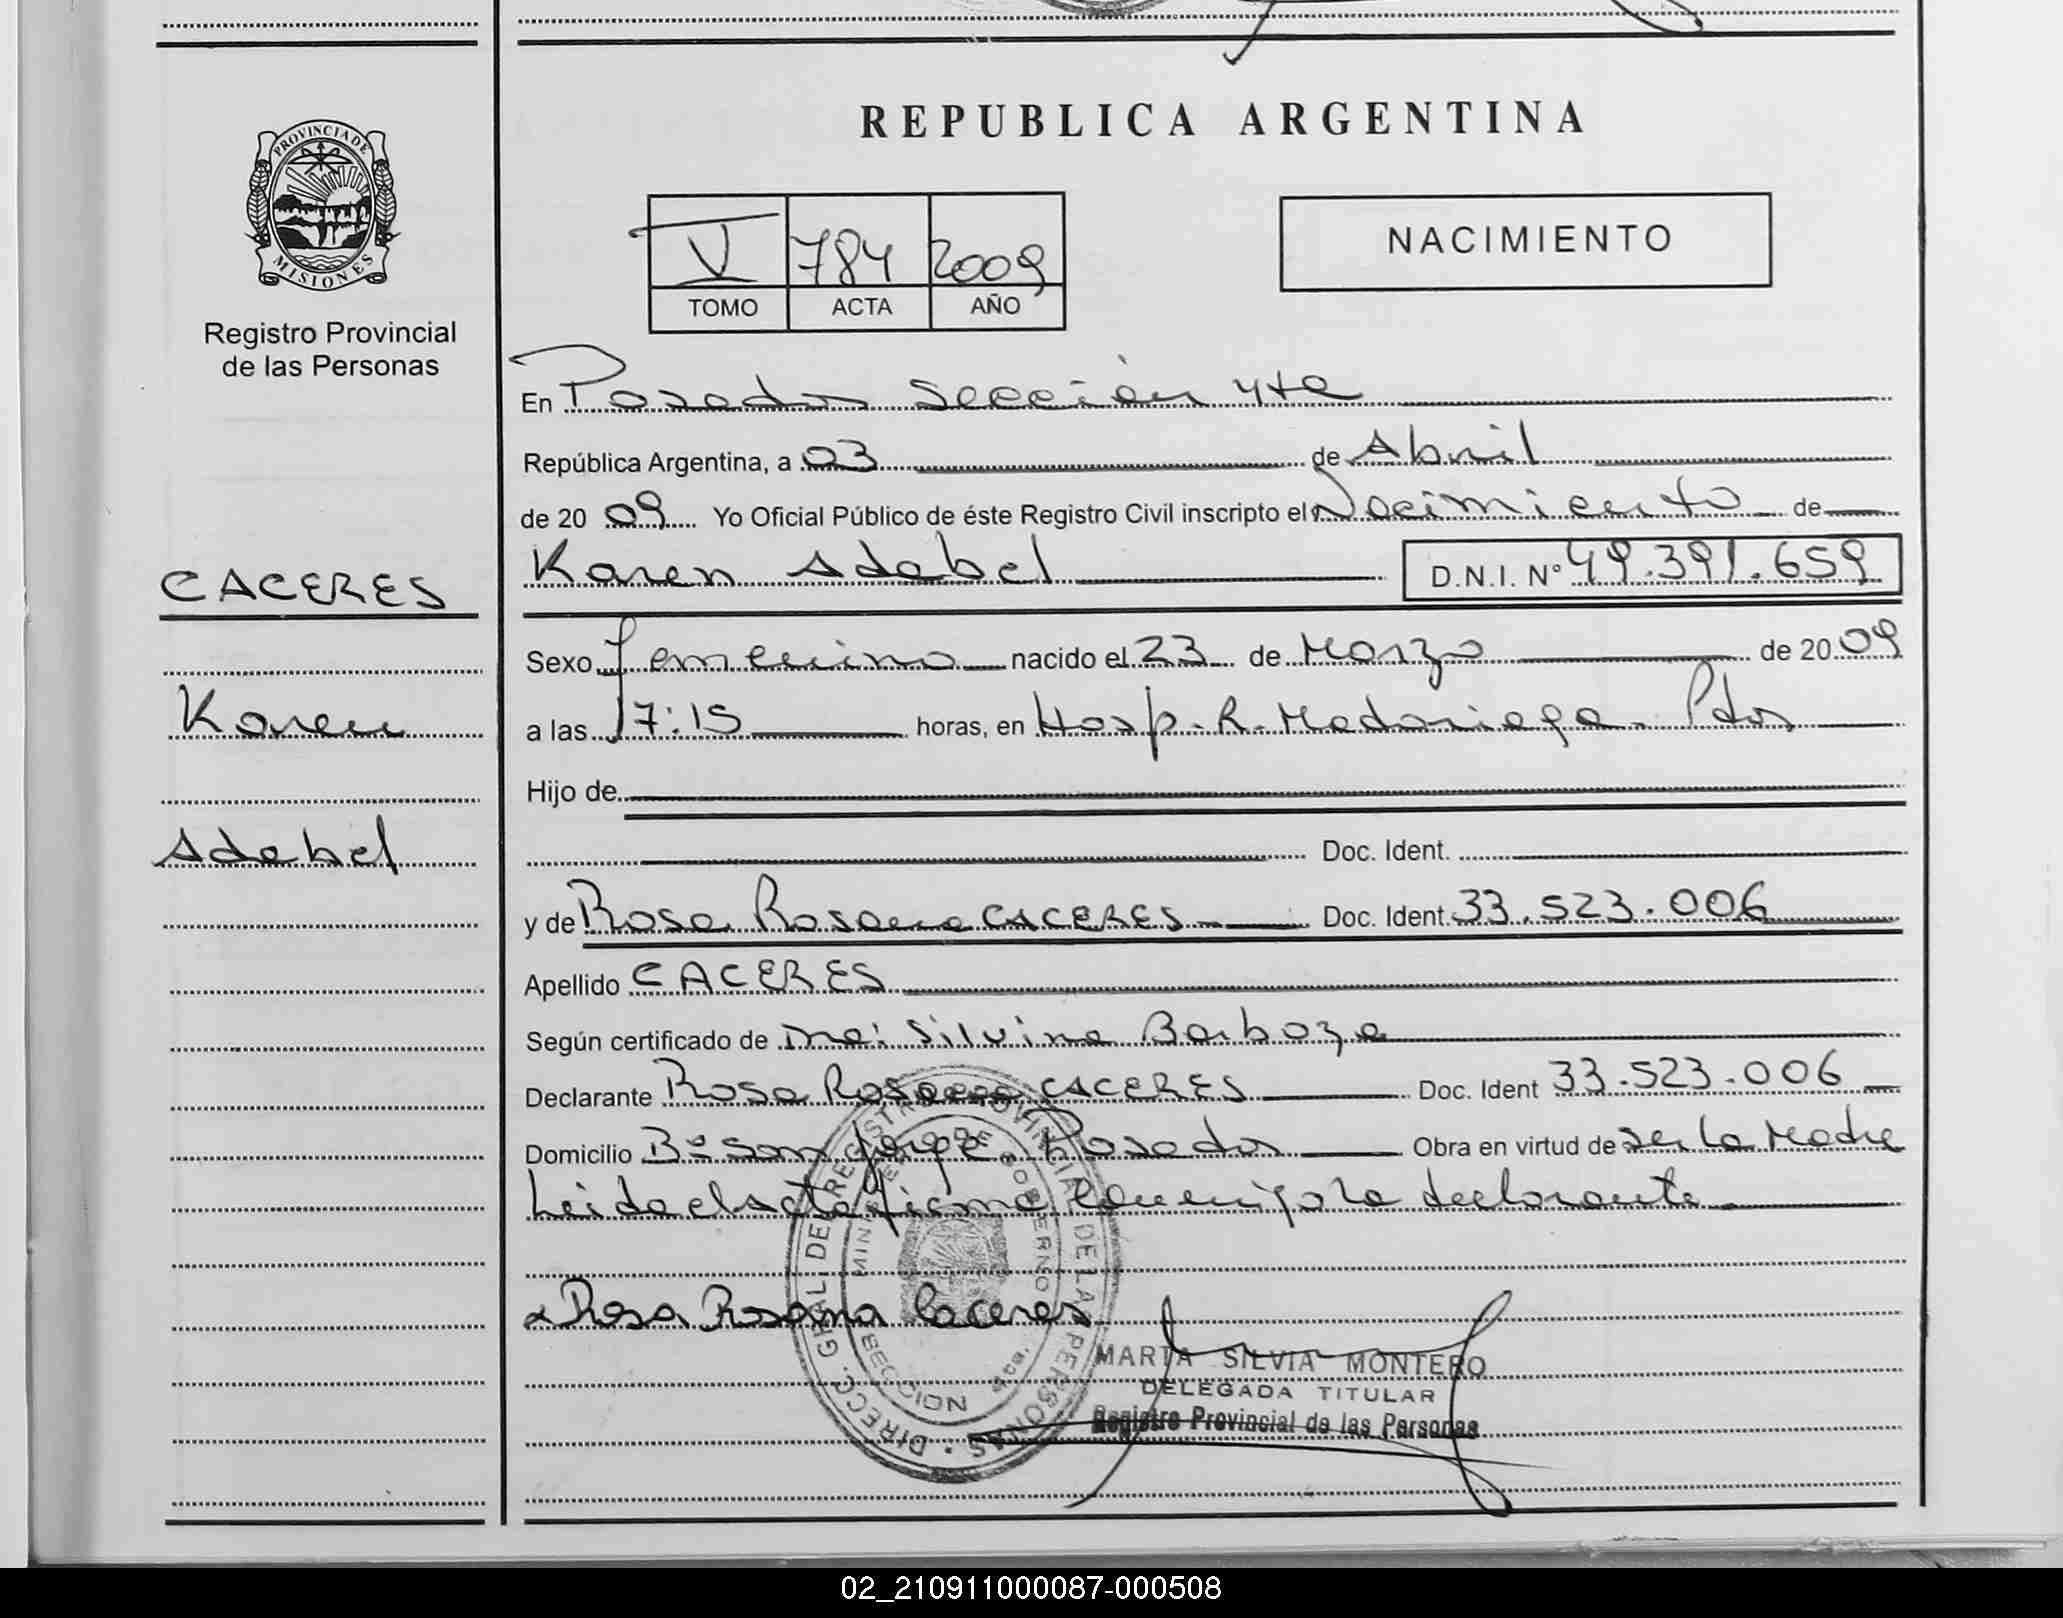 PROVINCIA DE
MISIONES
Registro Provincial
de las Personas
CACERES
Karen
Adabel
REPUBLICA ARGENTINA
V 784 2009
TOMO ACTA AÑO
NACIMIENTO
En Posadas Sección 4ta
República Argentina, a 03 de Abril
de 2009 Yo Oficial Público de éste Registro Civil inscripto el Nacimiento de
Karen Adabel D.N.I. Nº 49.391.659
Sexo femenino nacido el 23 de Marzo de 2009
a las 17:15 horas, en Hosp. R. Madariaga. Pdas
Hijo de
Doc. Ident.
y de Rosa Rosana CACERES Doc. Ident. 33.523.006
Apellido CACERES
Según certificado de Silvina Barboza
Declarante Rosa Rosana CACERES Doc. Ident 33.523.006
Domicilio Bº San Jorge. Posadas Obra en virtud de ser la Madre
Leida el acta firma conmigo la declarante
Rosa Rosana Caceres
DIRECC. GRAL DEL REGISTRO PROVINCIAL DE LAS PERSONAS
MARTA SILVIA MONTERO
DELEGADA TITULAR
Registro Provincial de las Personas
02_210911000087-000508